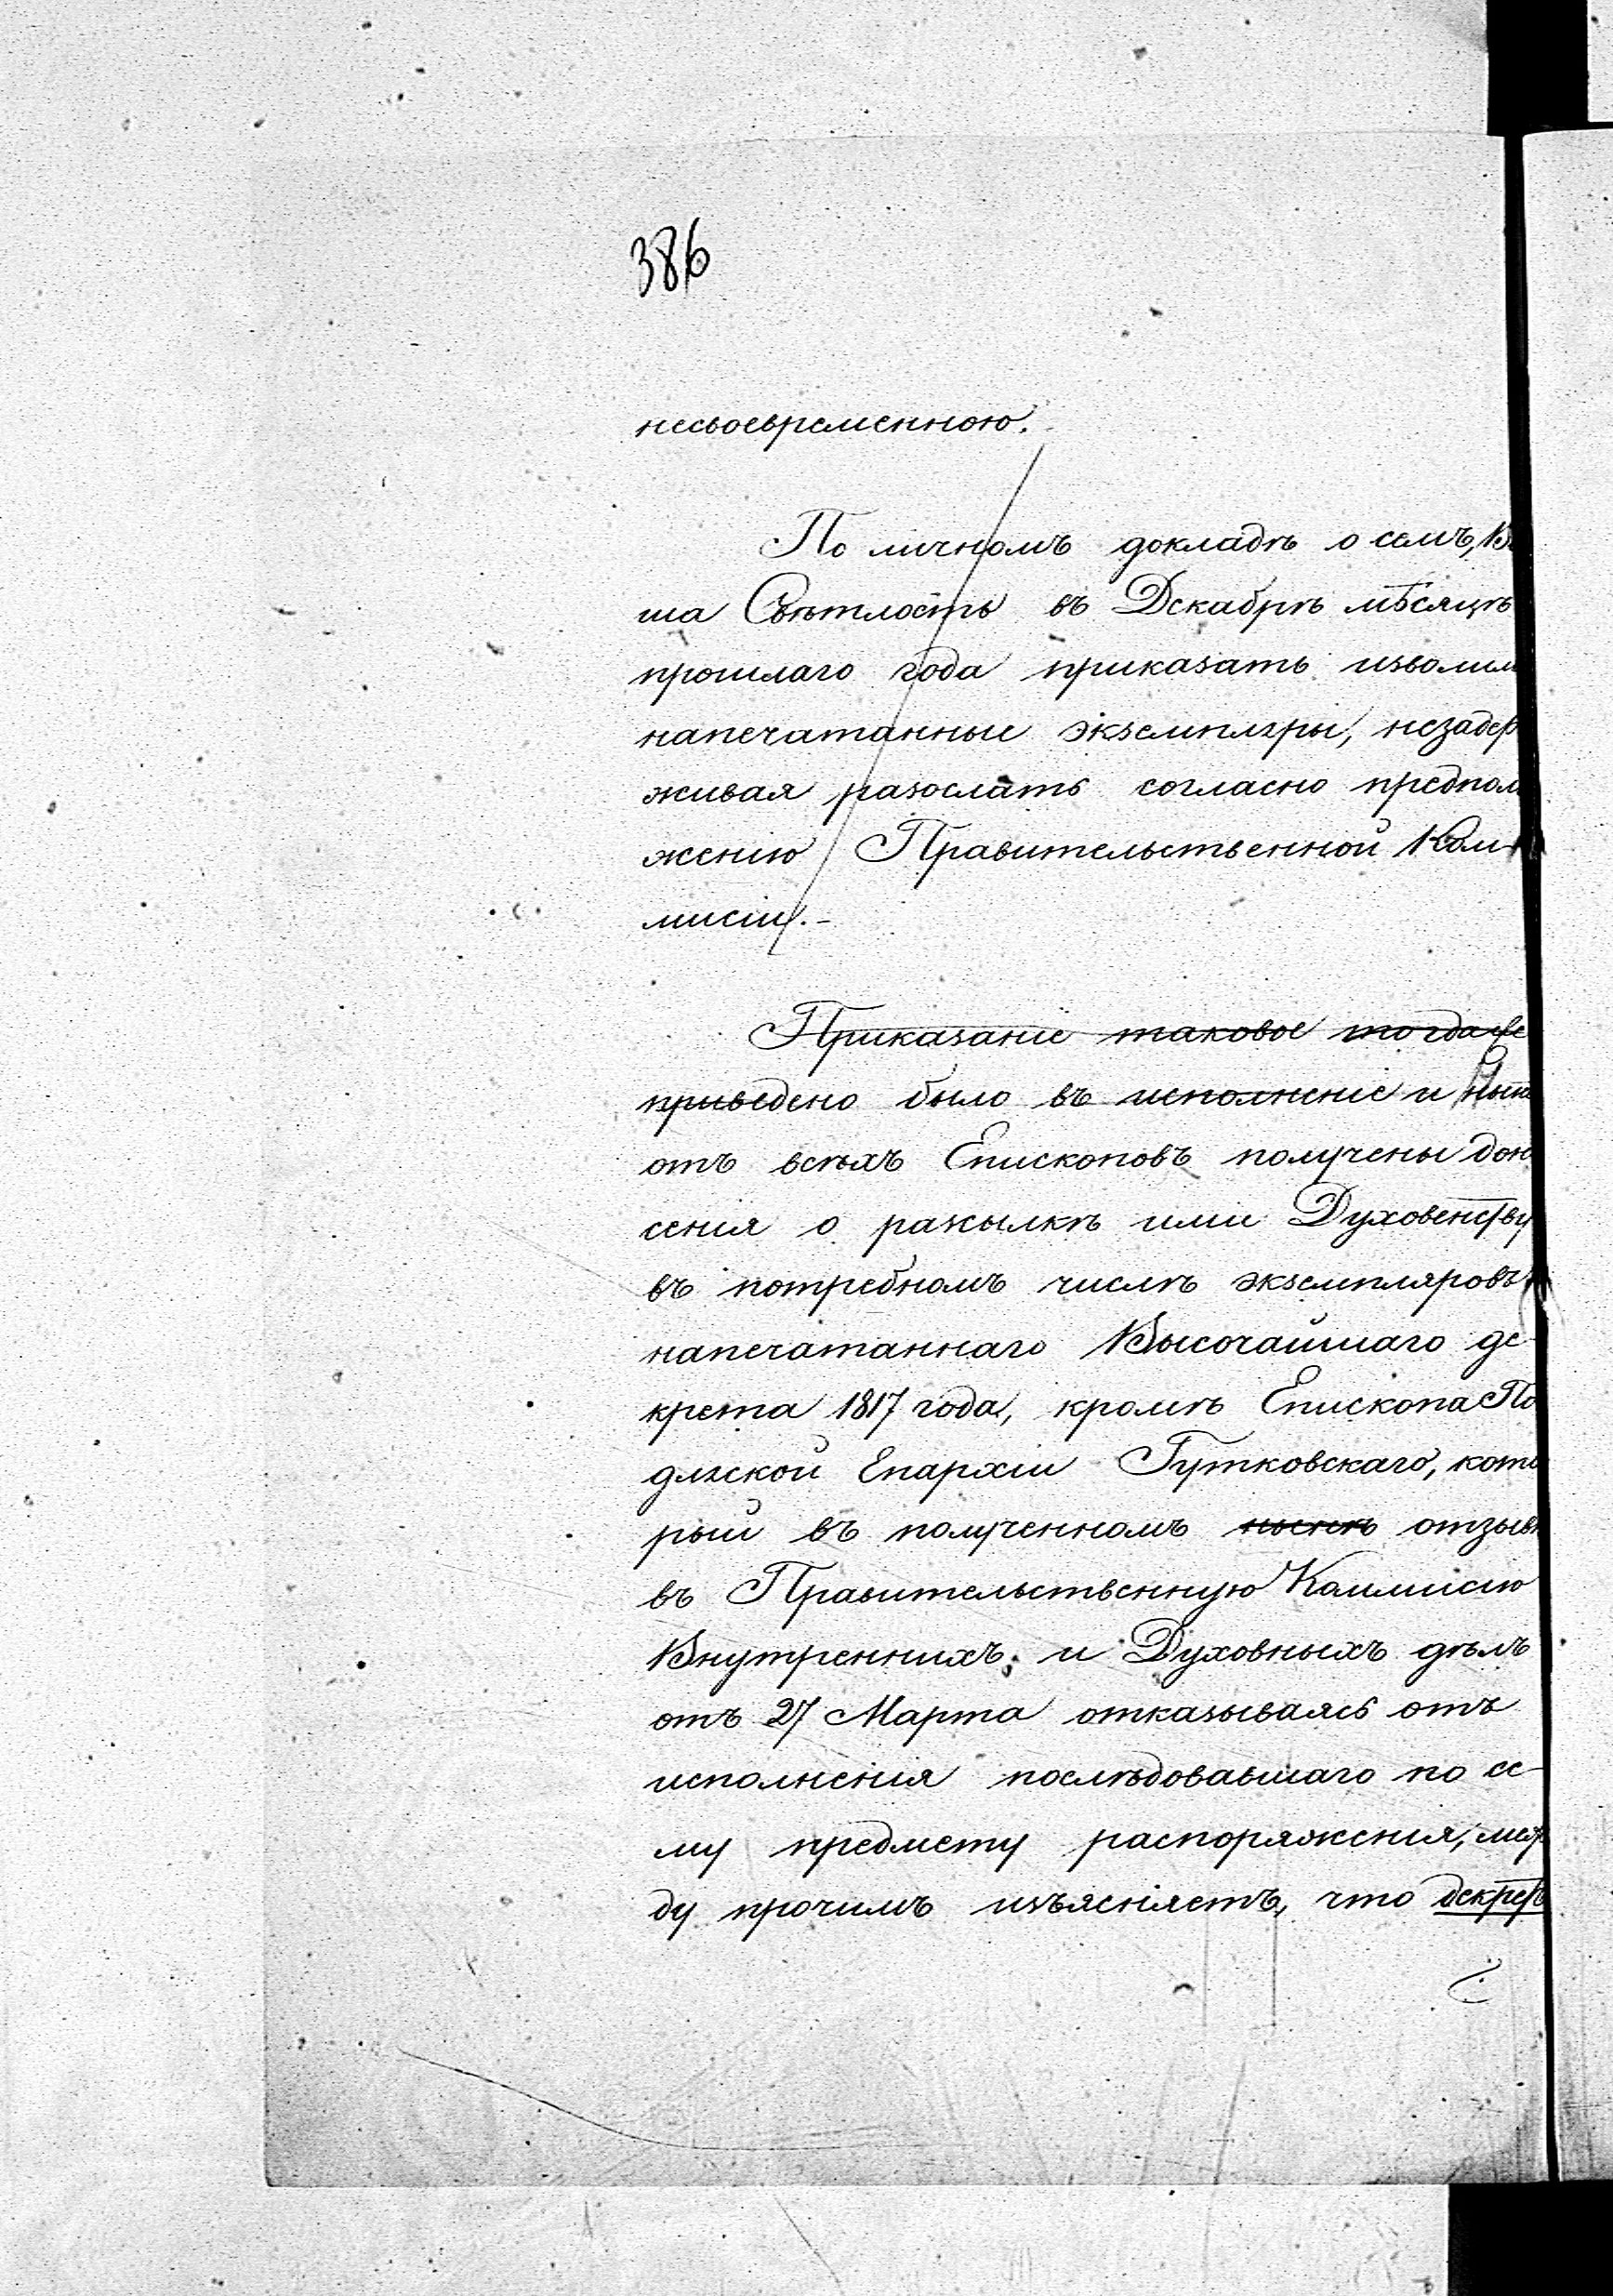 386
несвоевременною.
По личномъ докладѣ о семъ, Ва
ша Свѣтлость въ Декабрѣ мѣсяцѣ
прошлаго года приказать изволили
напечатанные экземпляры, незадер
живая разослать согласно предполо
женію Правительственной Ком-
мисіи.-
Приказаніе таковое тогда же
приведено было въ исполненіе и Нынѣ
отъ всѣхъ Епископовъ получены доне
сенія о разсылкѣ ими Духовенству
въ потребномъ числѣ экземпляровъ
напечатаннаго Высочайшаго де-
крета 1817 года, кромѣ Епископа По
дляской Епархіи Гутковскаго, кото
рый въ полученномъ нынѣ отзывѣ
въ Правительственную Коммисію
Внутреннихъ и Духовныхъ дѣлъ
отъ 27 Марта отказываясь отъ
исполненія послѣдовавшаго по се-
му предмету распоряженія, меж
ду прочимъ изъясняетъ, что декретъ